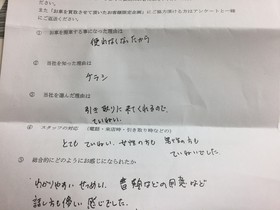 また「お車を買取させて頂いたお客様限定企画」にご協力頂ける方はアンケートに一緒
① お車を廃車する事になった理由は
使わなくなったから
② 当社を知った理由は
チラシ
③ 当社を選んだ理由は
引き取りに来てくれるので、
ていねい
④ スタッフの対応 （電話・来店時・引き取り時などの）
とても ていねい、女性の方も 男性の方も
ていねいでした。
⑤ 総合的にどのようにお感じになられたか
わかりやすい せつめい。 などの など
話し方も優しい感じでした。